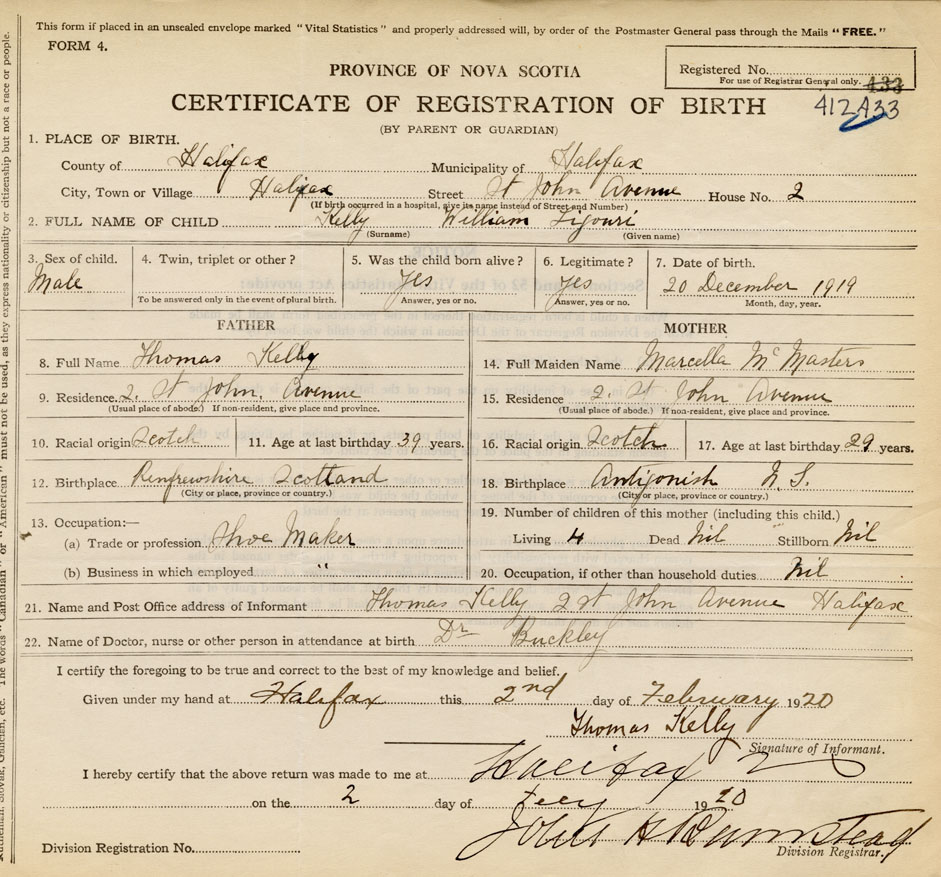 This form if placed in an unsealed envelope marked "Vital Statistics" and properly addressed will, by order of the Postmaster General pass through the Mails "FREE."
FORM 4.
Registered No.
For use of Registrar General only. 433
PROVINCE OF NOVA SCOTIA
CERTIFICATE OF REGISTRATION OF BIRTH
(BY PARENT OR GUARDIAN)
1. PLACE OF BIRTH.
County of Halifax Municipality of Halifax
City, Town or Village Halifax Street St John Avenue House No. 2
(If birth occurred in a hospital, give its name instead of Street and Number)
2. FULL NAME OF CHILD Kelly William Ligouri
(Surname) (Given name)
3. Sex of child. 4. Twin, triplet or other? 5. Was the child born alive? 6. Legitimate? 7. Date of birth.
Male Yes Yes 20 December 1919
To be answered only in the event of plural birth. Answer, yes or no. Answer, yes or no. Month, day, year.
FATHER
8. Full Name Thomas Kelly
9. Residence. 2. St John. Avenue
(Usual place of abode.) If non-resident, give place and province.
10. Racial origin Scotch 11. Age at last birthday 39 years.
12. Birthplace Renfrewshire Scotland
(City or place, province or country.)
13. Occupation:—
(a) Trade or profession Shoe Maker
(b) Business in which employed "
MOTHER
14. Full Maiden Name Marcella McMasters
15. Residence 2. St John Avenue
(Usual place of abode.) If non-resident, give place and province.
16. Racial origin Scotch 17. Age at last birthday 29 years.
18. Birthplace Antigonish N.S.
(City or place, province or country.)
19. Number of children of this mother (including this child.)
Living 4 Dead Nil Stillborn Nil
20. Occupation, if other than household duties Nil
21. Name and Post Office address of Informant Thomas Kelly 2 St John Avenue Halifax
22. Name of Doctor, nurse or other person in attendance at birth Dr Buckley
I certify the foregoing to be true and correct to the best of my knowledge and belief.
Given under my hand at Halifax this 2nd day of February 1920
Thomas Kelly
Signature of Informant.
I hereby certify that the above return was made to me at Halifax
on the 2 day of 1920
John
Division Registration No. Division Registrar.